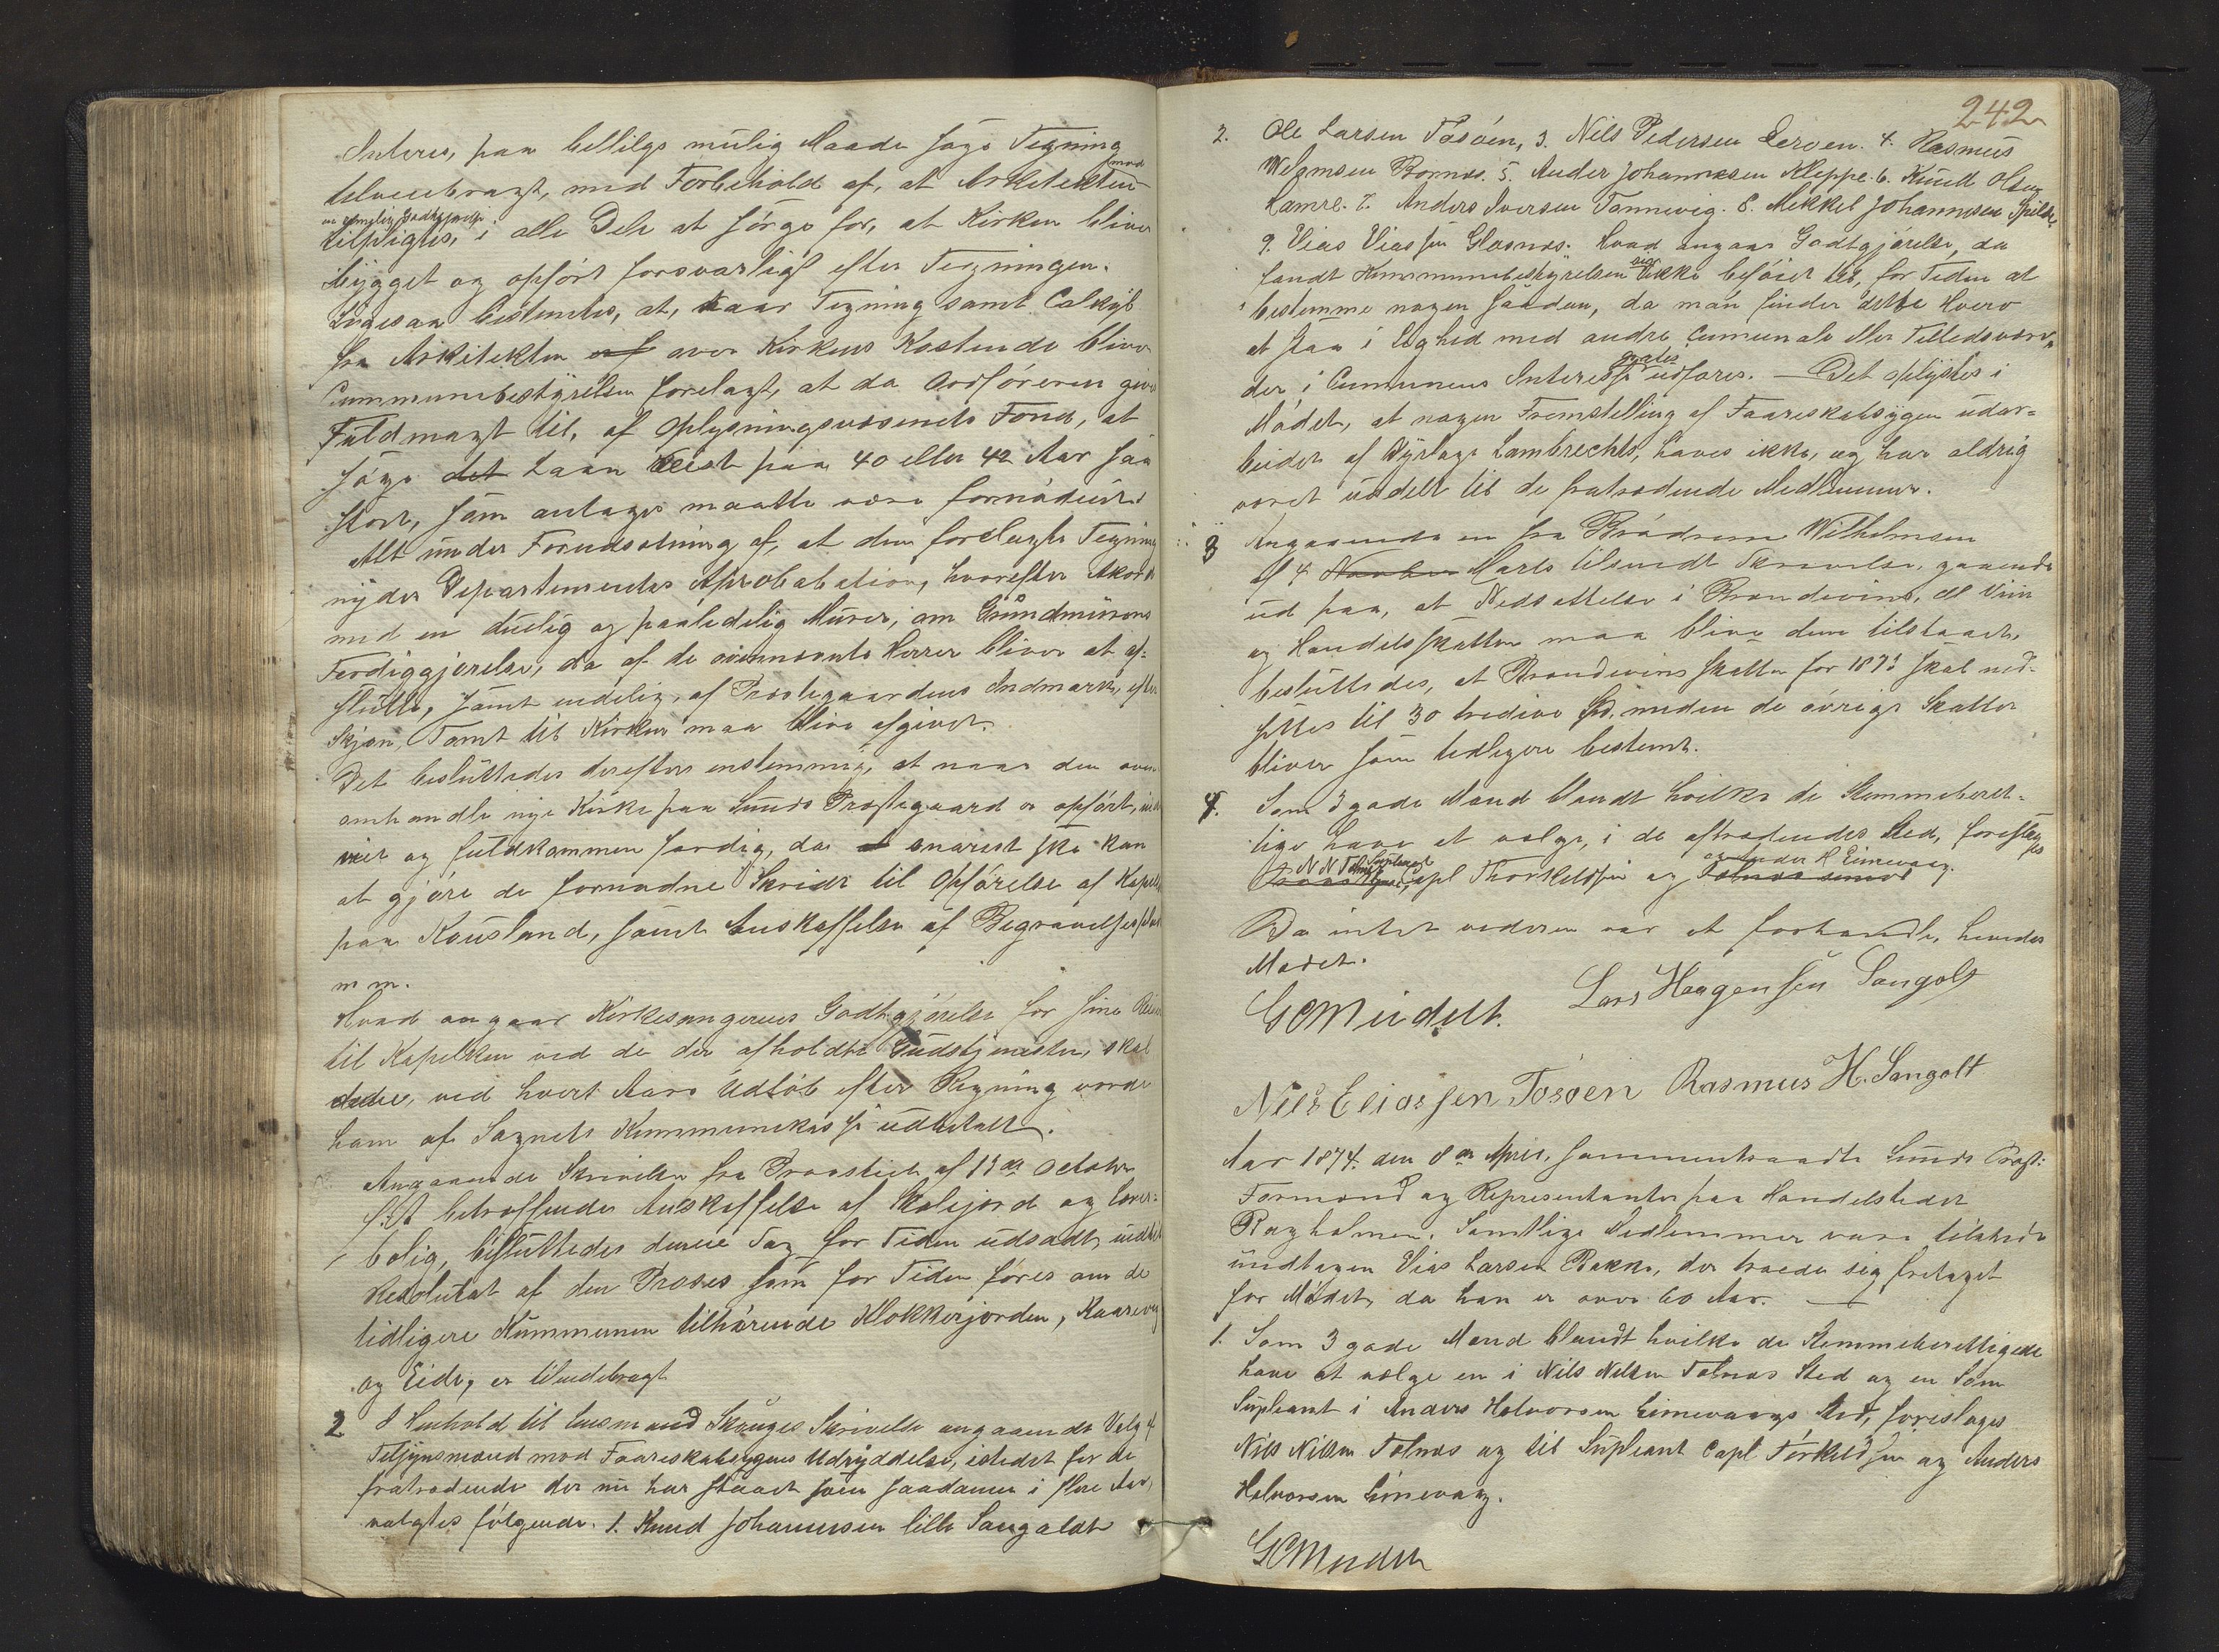 Interes, paa billigs mulig Maade søge Tegning
tilveiebragt, med Forbehold af, at Arkitekten mod
en rimelig Godtgjørelse
tilpligtes, i alle Dele at sørge for, at Kirken bliver
bygget og opført forsvarligt efter Tegningen.
Ligesaa bestemtes, at, naar Tegning samt Calkyle
fra Arkitekten over Kirkens Kostende bliver
Cummunebestyrelsen forelagt, at da Ordføreren gives
Fuldmagt til, af Oplysningsvæsenets Fond, at
søge det Laan paa 40 eller 42 Aar saa
stort, som antages maatte være fornødent.
Alt under Forudsætning af, at den forelagte Tegning
nyder Departementes Aprobatation, hvorefter Akord
med en duelig og paalidelig Murer, om Grundmurens
Ferdiggjørelse, da af de ovennævnte Herrer bliver at af-
slutte, samt endelig, af Præstegaardens Indmark, efter
Skjøn, Tomt til Kirken maa blive afgivet.
Det besluttedes derefter enstemmig, at naar den oven-
omhandle nye Kirke paa Sunds Præstegaard er opført, ind-
viet og fuldkommen færdig, da snarest ske kan
at gjøre de fornødne Skridt til Opførelse af Kapel
paa Kausland, samt Anskaffelse af Begravelsesplads
m m.
Hvad angaar Kirkesangerens Godtgjørelse for sine Reiser
til Kapellen ved de der afholdte Gudstjenester, skal
dette, ved hvert Aars Udløb efter Regning vorde
ham af Sognets Kummunekasse udbetalt.
Angaaende Skrivelse fra Provstiet af 13de October
f.A. betræffende Anskaffelse af Skolejord og Lærer-
bolig, besluttedes denne Sag for Tiden udsadt, indtil
Resolutat af den Proses som for Tiden føres om de
tidligere Kummunen tilhørende Klokkerjorden, Kaarevig
og Eide, er tilendebragt
2 I Henhold til Lensmand Skauges Skrivelse angaaende Valg af
Tilsynsmænd mod Faareskabsygens Udryddelse, istedet for de
fratrædende der nu har staaet som saadanne i flere Aar,
valgtes følgende. 1. Knud Johannesen lille Sangoldt
242
2. Ole Larsen Tøsøen, 3. Nils Pedersen Lerøen. 4. Rasmus
Wilhmsen Bornæs. 5. Ander Johannesen Kleppe. 6. Knud Olsen
Hamre. 7. Anders Iversen Tannevig. 8. Mekkel Johannesen Spilde
9. Elias Eliassen Glesnæs. Hvad angaar Godtgjørelse, da
fandt Kummunebestyrelsen sig ikke beføiet til, for Tiden at
bestemme nogen saadan, da man finder dette Hverv
at staa i Lighed med andre Cumunale eller Tillidshverv,
der, i Cumunens Interesse gratis udføres. — Det oplystes i
Mødet, at nogen Fremstilling af Faareskabsygen udar-
beidet af Dyrlæge Lambrechts, haves ikke, og har aldrig
været uddelt til de fratrædende Medlemmer.
3 Angaaende en fra Brødrene Wilhelmsen
af 4 Marts tilsendt Skrivelse, gaaende
ud paa, at Nedsættelse i Brændevins, Øl Viin
og Handelsskatten maa blive dem tilstaaet,
besluttedes, at Brændevinsskatten for 1873 skal ned-
sættes til 30 tredive Spd. meden de øvrige Skatter
bliver som tidligere bestemt.
4. Som 3 gode Mænd blandt hvilke de Stemmeberet-
tige have at vælge, i de aftrædendes Sted, foreslages
N N Telnæs Supleant Capl Thorkeldsen og Ander H Eimevaag.
Da intet videre var at forhandle, hævedes
Mødet.
G C Meidell. Lars Haagensen Sangolt
Nils Eliassen Tøsøen Rasmus H. Sangolt
Aar 1874. den 8de April, sammentraadte Sunds Præst:
Formænd og Representanter paa Handelstedet
Bagholmen. Samtlige Medlemmer vare tilstede
undtagen Elias Larsen Bakke, der troede sig fritaget
for Mødet, da han er over 60 Aar. —
1. Som 3 gode Mænd blandt hvilke de Stemmeberettigede
have at vælge en i Nils Nilsen Telnæs Sted og en som
Supleant i Anders Halvorsen Eimevaags Sted, foreslages
Nils Nilsen Telnæs og til Supleant Capl Torkeldsen og Anders
Halvorsen Eimevaag.
G C Meidell